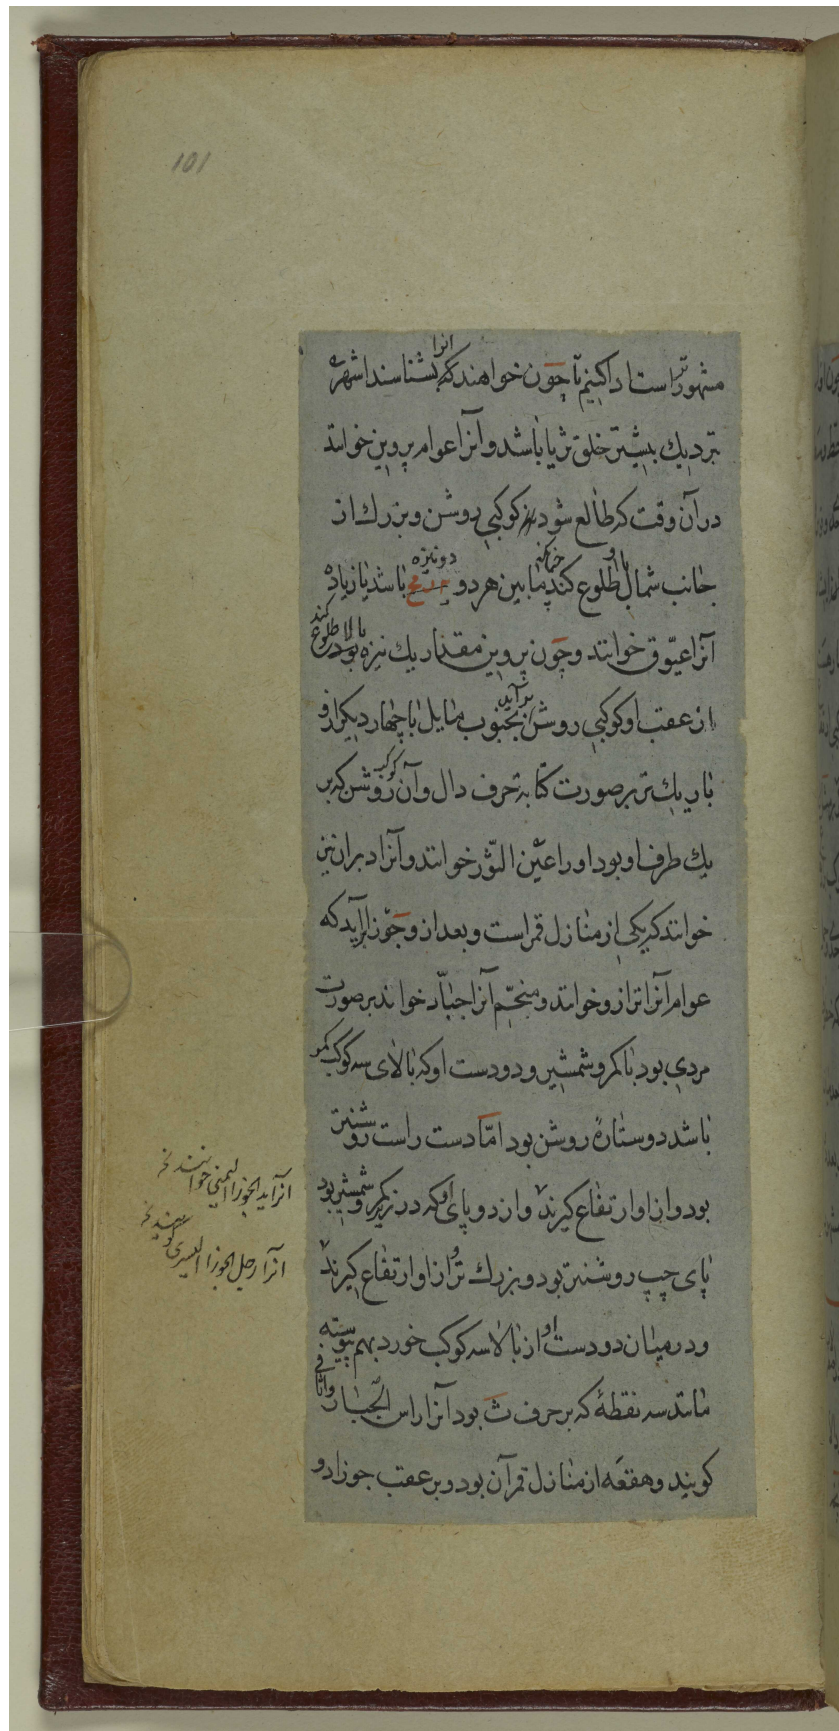 101
مشهورتر است یاد کنیم تا چون خواهند که انرا بشناسند اشهره
نزدیك بیشتر خلق ثریا باشد و آنرا عوام پروین خوانند
در آن وقت که طالع شود کوکبی روشن و بزرك از
جانب شمال با او طلوع کند چنانکه مابین هر دو دو نیزه باشد یا زیاده
آنرا عیّوق خوانند و چون پروین مقدار یك نیزه بالا طلوع کند بود
از عقب او کوکبی روشن برآید بجنوب مایل با چهار دیکر ازو
باریك تر بر صورت کتابه حرف دال و آن کوکب روشن که بر
یك طرف او بود او را عین الثّور خوانند و آنرا دبران نیز
خوانند که یکی از منازل قمر است و بعد از و جوزا برآید که
عوام آنرا ترازو خوانند و منجّم آنرا جبّار خواند بر صورت
مردی بود با کمر و شمشیر و دو دست او که بالای سه کوکب کمر
باشد دو ستارهٔ روشن بود امّا دست راست روشنتر
بود و از او ارتفاع کیرند و از دو پای او که در زیر کمر و شمشیر بود
پای چپ روشنتر بود و بزرك تر و از او ارتفاع کیرند
و در میان دو دست او از بالا سه کوکب خورد بهم پیوسته
مانند سه نقطهٔ که بر حرف ث بود آنرا راس الجبّار
کویند و هقعه از منازل قمر آن بود و بر عقب جوزا دو
انرا ید الجوزا الیمنی خوانند
انرا رجل الجوزا الیسری کویند